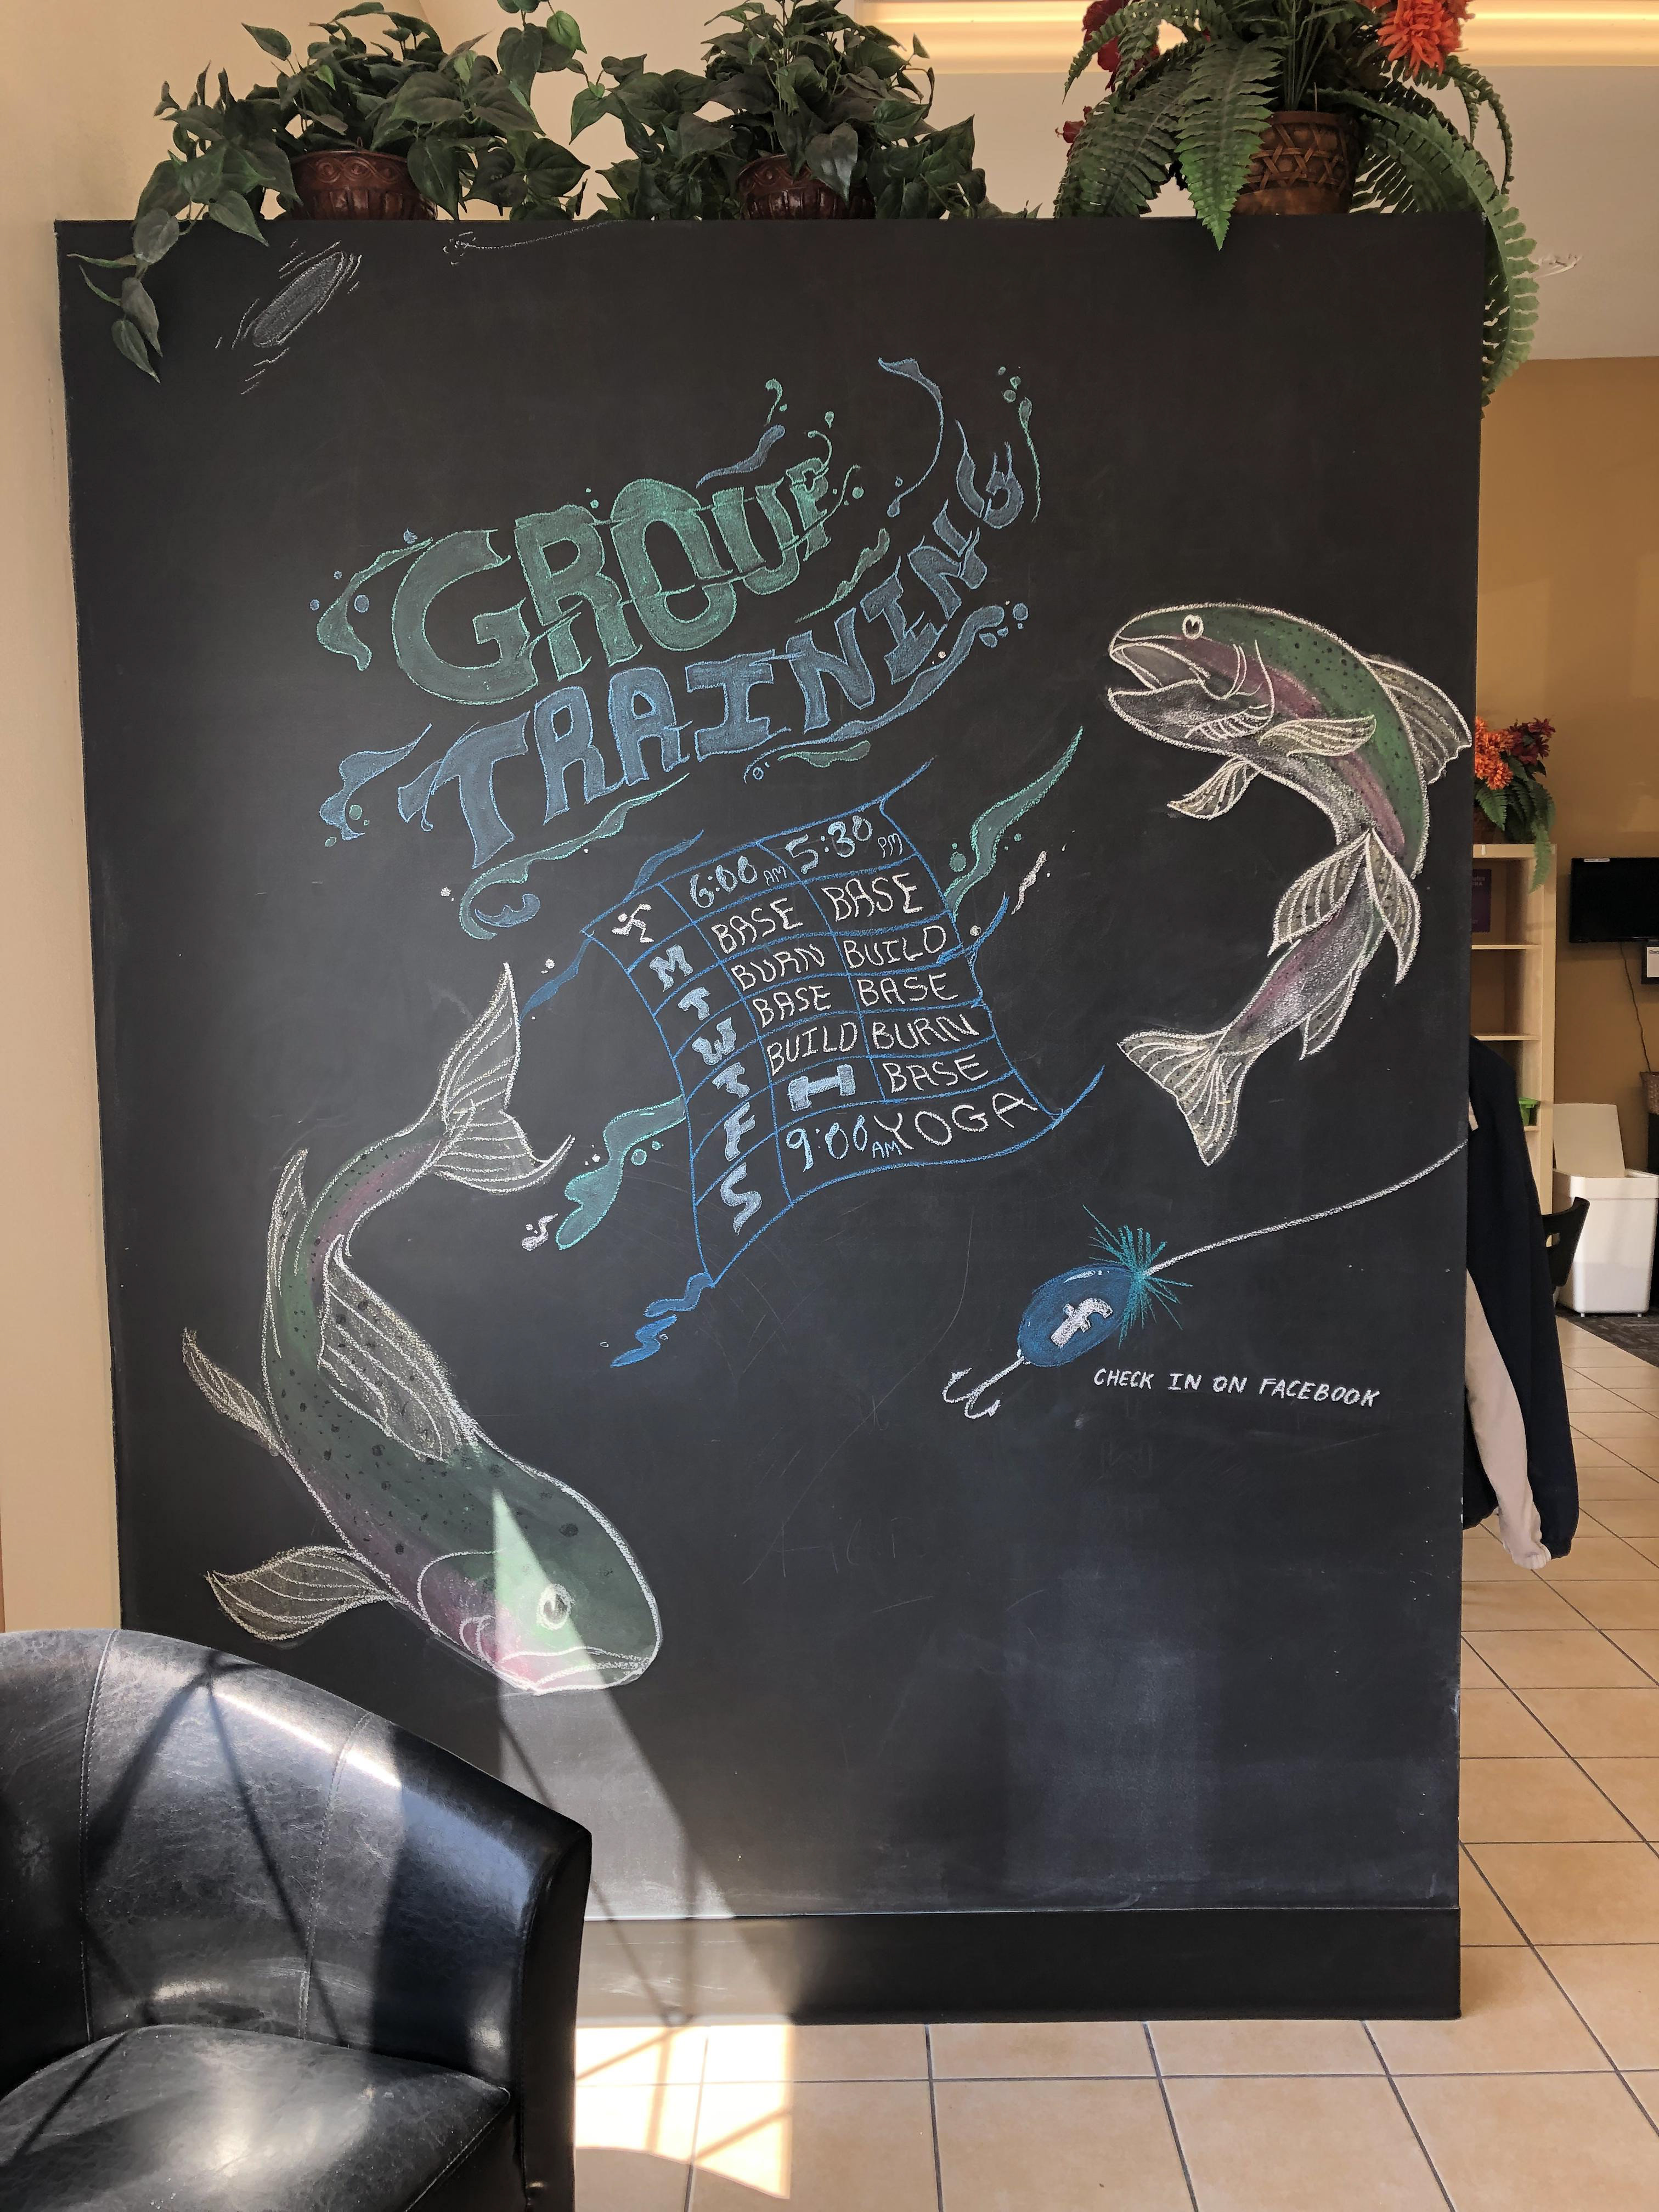 GROUP
TRAINING
6:00 AM 5:30 PM
M BASE BASE
T BURN BUILD
W BASE BASE
T BUILD BURN
F BASE
S 9:00 AM YOGA
f
CHECK IN ON FACEBOOK